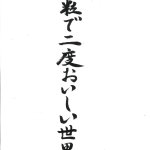 粒で二度おいしい世界